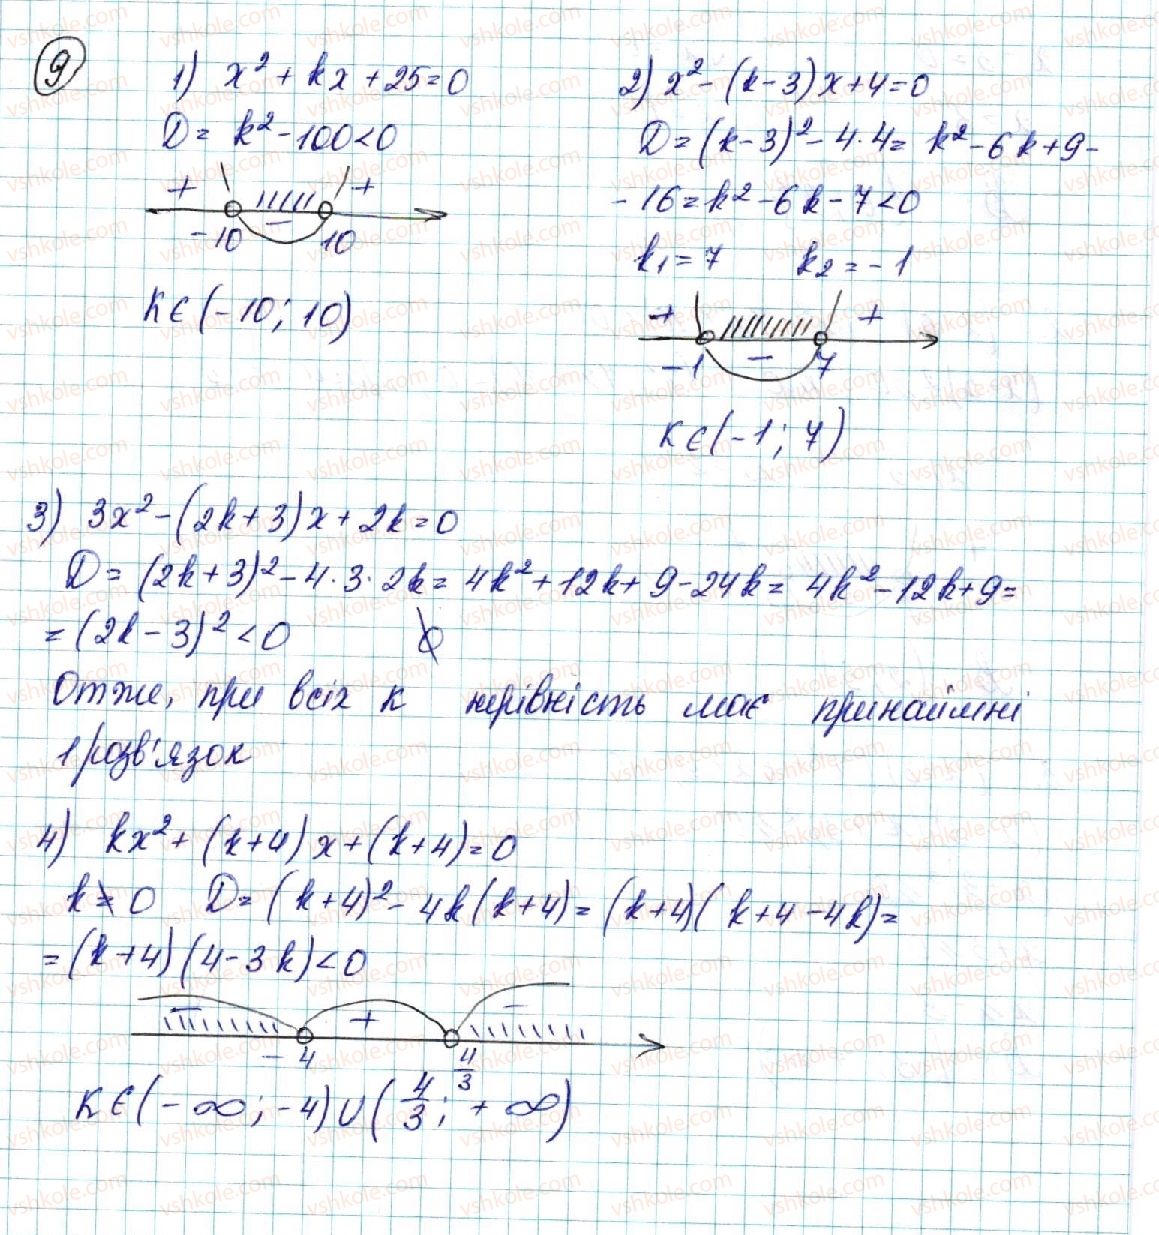 9
1) x² + kx + 25 = 0
D = k² - 100 < 0
+ - +
-10 10
K Є (-10; 10)
2) x² - (k-3)x + 4 = 0
D = (k-3)² - 4·4 = k² - 6k + 9 -
- 16 = k² - 6k - 7 < 0
k₁ = 7 k₂ = -1
+ - +
-1 7
K Є (-1; 7)
3) 3x² - (2k+3)x + 2k = 0
D = (2k+3)² - 4·3·2k = 4k² + 12k + 9 - 24k = 4k² - 12k + 9 =
= (2k-3)² < 0 ∅
Отже, при всіх к нерівність має принаймні
1 розв'язок
4) kx² + (k+4)x + (k+4) = 0
k ≠ 0 D = (k+4)² - 4k(k+4) = (k+4)(k+4-4k) =
= (k+4)(4-3k) < 0
- + -
-4 4/3
K Є (-∞; -4) ∪ (4/3; +∞)
vshkole.com